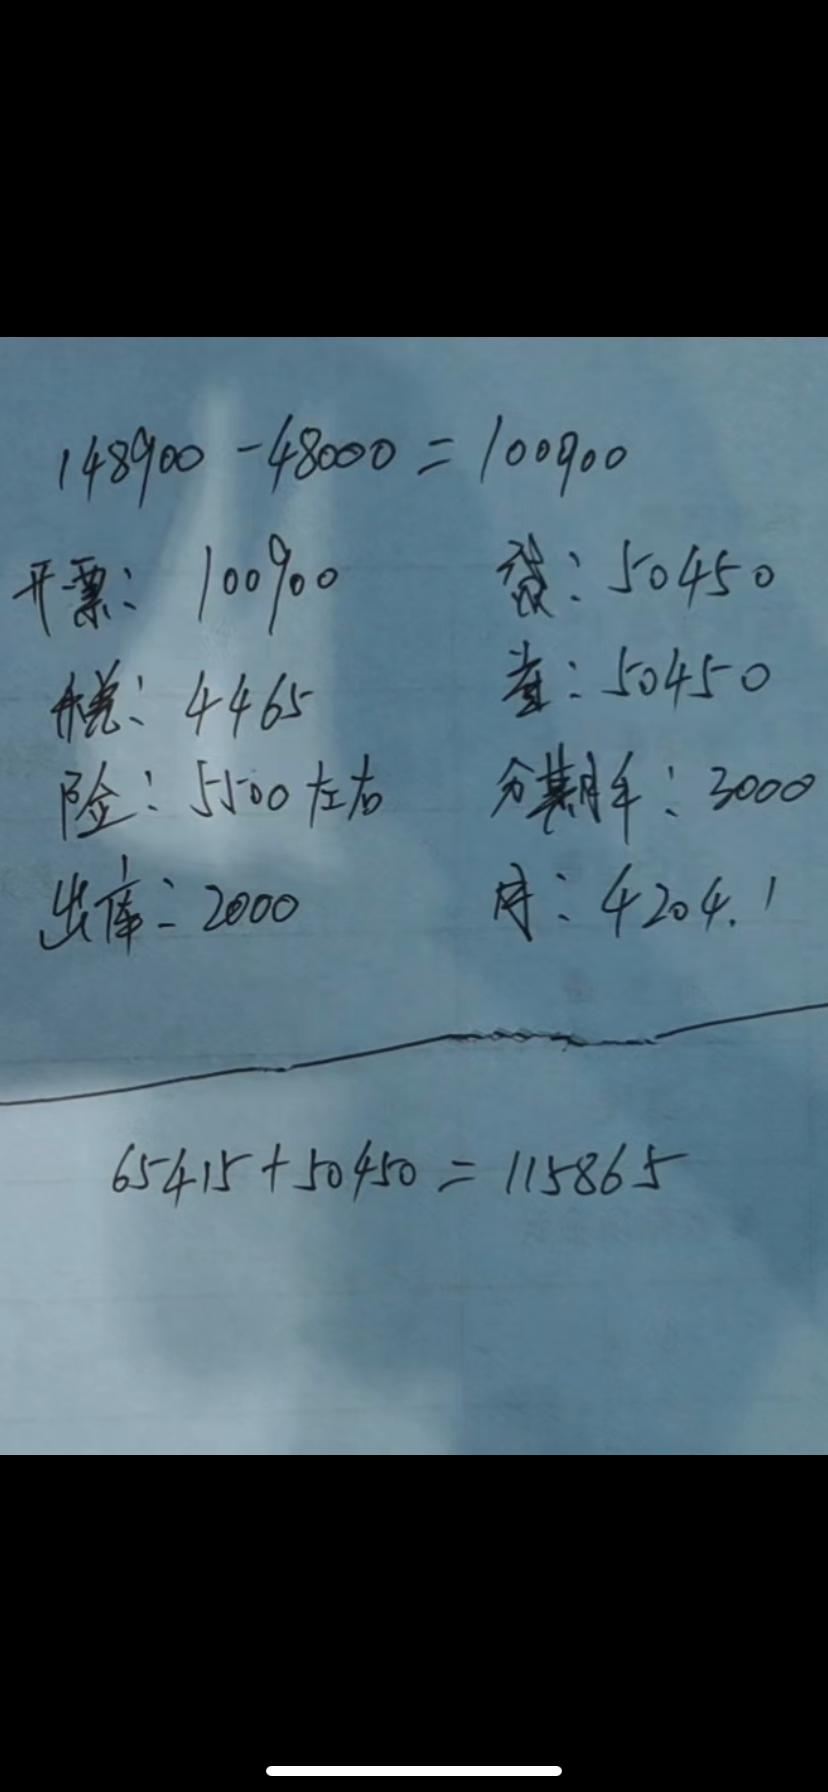 148900-48000=100900
开票: 100900
贷: 50450
税: 4465
首: 50450
险: 5500左右
分期手: 3000
出库: 2000
月: 4204.1
65415+50450=115865